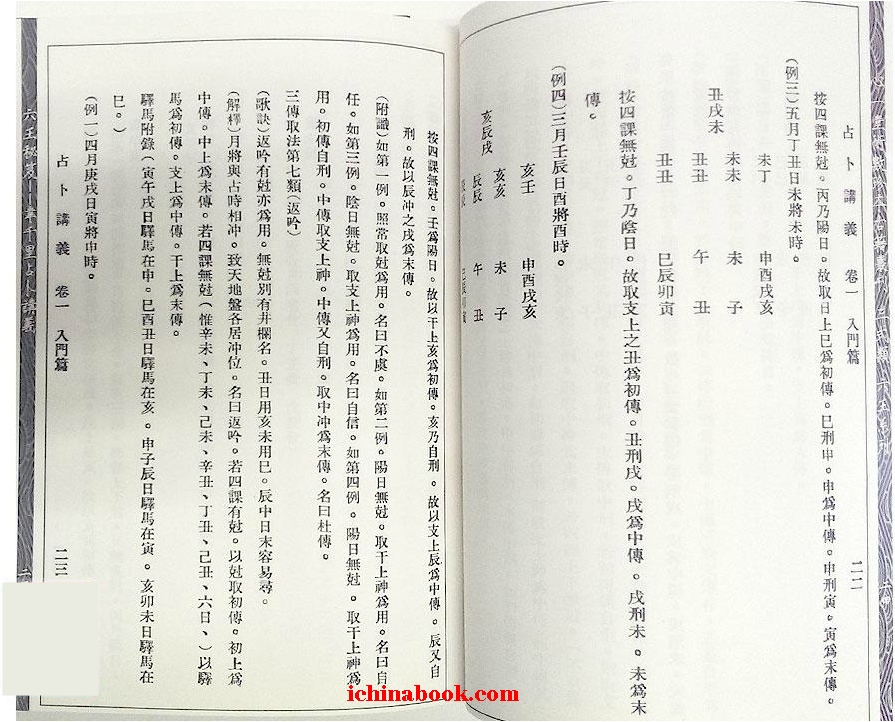 占卜講義 卷一 入門篇
二二
按四課無尅。丙乃陽日。故取日上巳爲初傳。巳刑申。申爲中傳。申刑寅。寅爲末傳。
(例三)五月丁丑日未將未時。
未丁 申酉戌亥
未未 未 子
丑戌未
丑丑 午 丑
丑丑 巳辰卯寅
按四課無尅。丁乃陰日。故取支上之丑爲初傳。丑刑戌。戌爲中傳。戌刑未。未爲末
傳。
(例四)三月壬辰日酉將酉時。
亥壬 申酉戌亥
亥亥 未 子
亥辰戌
辰辰 午 丑
巳辰卯寅
按四課無尅。壬爲陽日。故以干上亥爲初傳。亥乃自刑。故以支上辰爲中傳。辰又自
刑。故以辰冲之戌爲末傳。
(附識)如第一例。照常取尅爲用。名曰不虞。如第二例。陽日無尅。取干上神爲用。名曰自
任。如第三例。陰日無尅。取支上神爲用。名曰自信。如第四例。陽日無尅。取干上神爲
用。初傳自刑。中傳取支上神。中傳又自刑。取中冲爲末傳。名曰杜傳。
三傳取法第七類(返吟)
(歌訣)返吟有尅亦爲用。無尅別有井欄名。丑日用亥未用巳。辰中日末容易尋。
(解釋)月將與占時相冲。致天地盤各居冲位。名曰返吟。若四課有尅。以尅取初傳。初上爲
中傳。中上爲末傳。若四課無尅(惟辛未、丁未、己未、辛丑、丁丑、己丑、六日、)以驛
馬爲初傳。支上爲中傳。干上爲末傳。
驛馬附錄(寅午戌日驛馬在申。巳酉丑日驛馬在亥。申子辰日驛馬在寅。亥卯未日驛馬在
巳。)
(例一)四月庚戌日寅將申時。
占卜講義 卷一 入門篇
二三
ichinabook.com